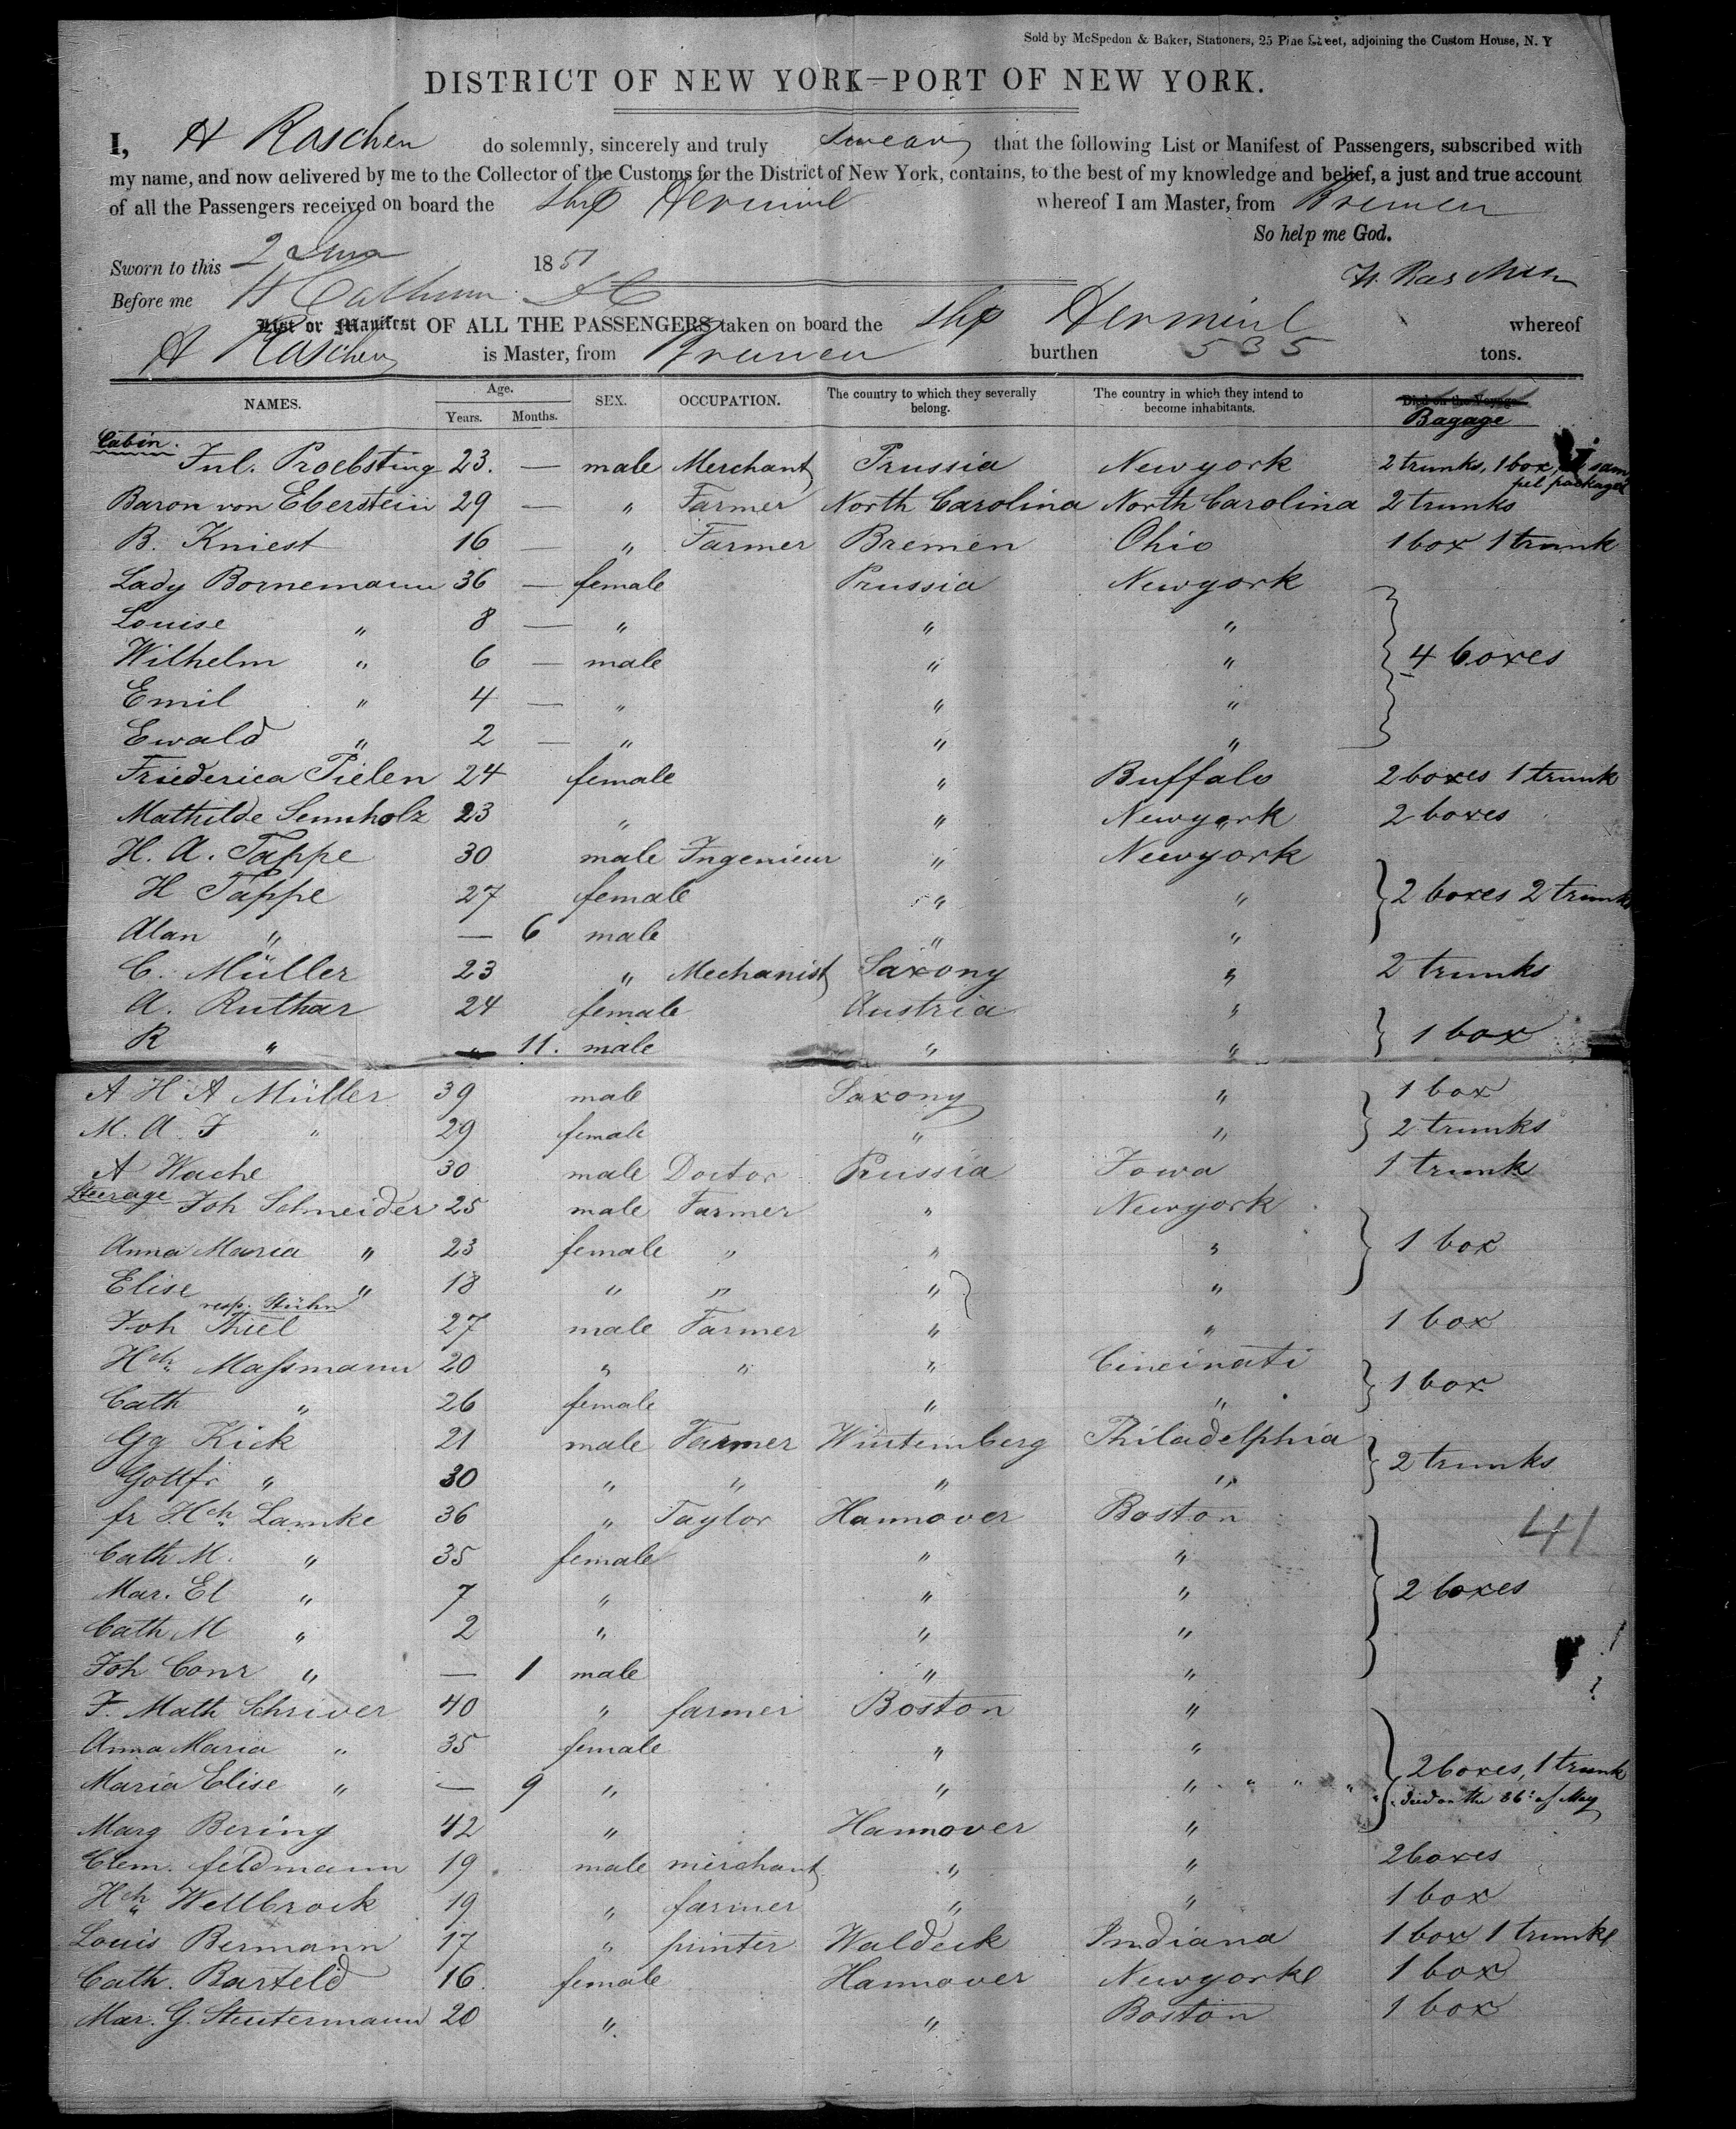 Sold by McSpedon & Baker, Stationers, 25 Pine Street, adjoining the Custom House, N. Y
DISTRICT OF NEW YORK—PORT OF NEW YORK.
I, H Raschen do solemnly, sincerely and truly swear that the following List or Manifest of Passengers, subscribed with
my name, and now delivered by me to the Collector of the Customs for the District of New York, contains, to the best of my knowledge and belief, a just and true account
of all the Passengers received on board the Ship Hermine whereof I am Master, from Bremen
So help me God.
Sworn to this 2 June 1851
H. Raschen
Before me
List or Manifest OF ALL THE PASSENGERS taken on board the Ship Hermine whereof
H Raschen is Master, from Bremen burthen 535 tons.
NAMES. Age. Years. Months. SEX. OCCUPATION. The country to which they severally belong. The country in which they intend to become inhabitants. Died on the Voyage Bagage
Cabin.
Jul. Proebsting 23. — male Merchant Prussia Newyork 2 trunks, 1 box, sam
pel packages
Baron von Eberstein 29 — " Farmer North Carolina North Carolina 2 trunks
B. Kniest 16 — " Farmer Bremen Ohio 1 box 1 trunk
Lady Bornemann 36 — female Prussia Newyork
Louise " 8 — " " "
Wilhelm " 6 — male " " 4 boxes
Emil " 4 — " " "
Ewald " 2 — " " "
Friederica Pielen 24 female " Buffalo 2 boxes 1 trunk
Mathilde Sennholz 23 " " Newyork 2 boxes
H. A. Tappe 30 male Ingenieur " Newyork
H Tappe 27 female " " 2 boxes 2 trunks
Alan " — 6 male " "
C. Müller 23 " Mechanist Saxony " 2 trunks
A. Ruthar 24 female Austria "
R " " 11. male " " 1 box
A H A Müller 39 male Saxony " 1 box
M. A. F " 29 female " " 2 trunks
A Wache 30 male Doctor Prussia Iowa 1 trunk
Steerage Joh Schneider 25 male Farmer " Newyork
Anna Maria " 23 female " " " 1 box
Elise " 18 " " " "
resp. Stühn
Joh Thiel 27 male Farmer " " 1 box
Hch Maßmann 20 " " " Cincinati
Cath " 26 female " " 1 box
Gg Kick 21 male Farmer Würtemberg Philadelphia
Gottfr " 30 " " " " 2 trunks
fr Hch Lamke 36 " Taylor Hannover Boston
41
Cath M. " 35 female " "
Mar. El " 7 " " " 2 boxes
Cath M " 2 " " "
Joh Conr " — 1 male " "
F. Math Schriver 40 " farmer Boston "
Anna Maria " 35 female " "
Maria Elise " — 9 " " " " " " 2 boxes, 1 trunk
died on the of May
Marg Bering 42 " Hannover "
Clem. feldmann 19 male merchant " " 2 boxes
Hch Wellbrock 19 " farmer " " 1 box
Louis Bermann 17 " printer Waldeck Indiana 1 box 1 trunk
Cath. Barteld 16. female Hannover Newyork 1 box
Mar. G. Steutermann 20 " " Boston 1 box